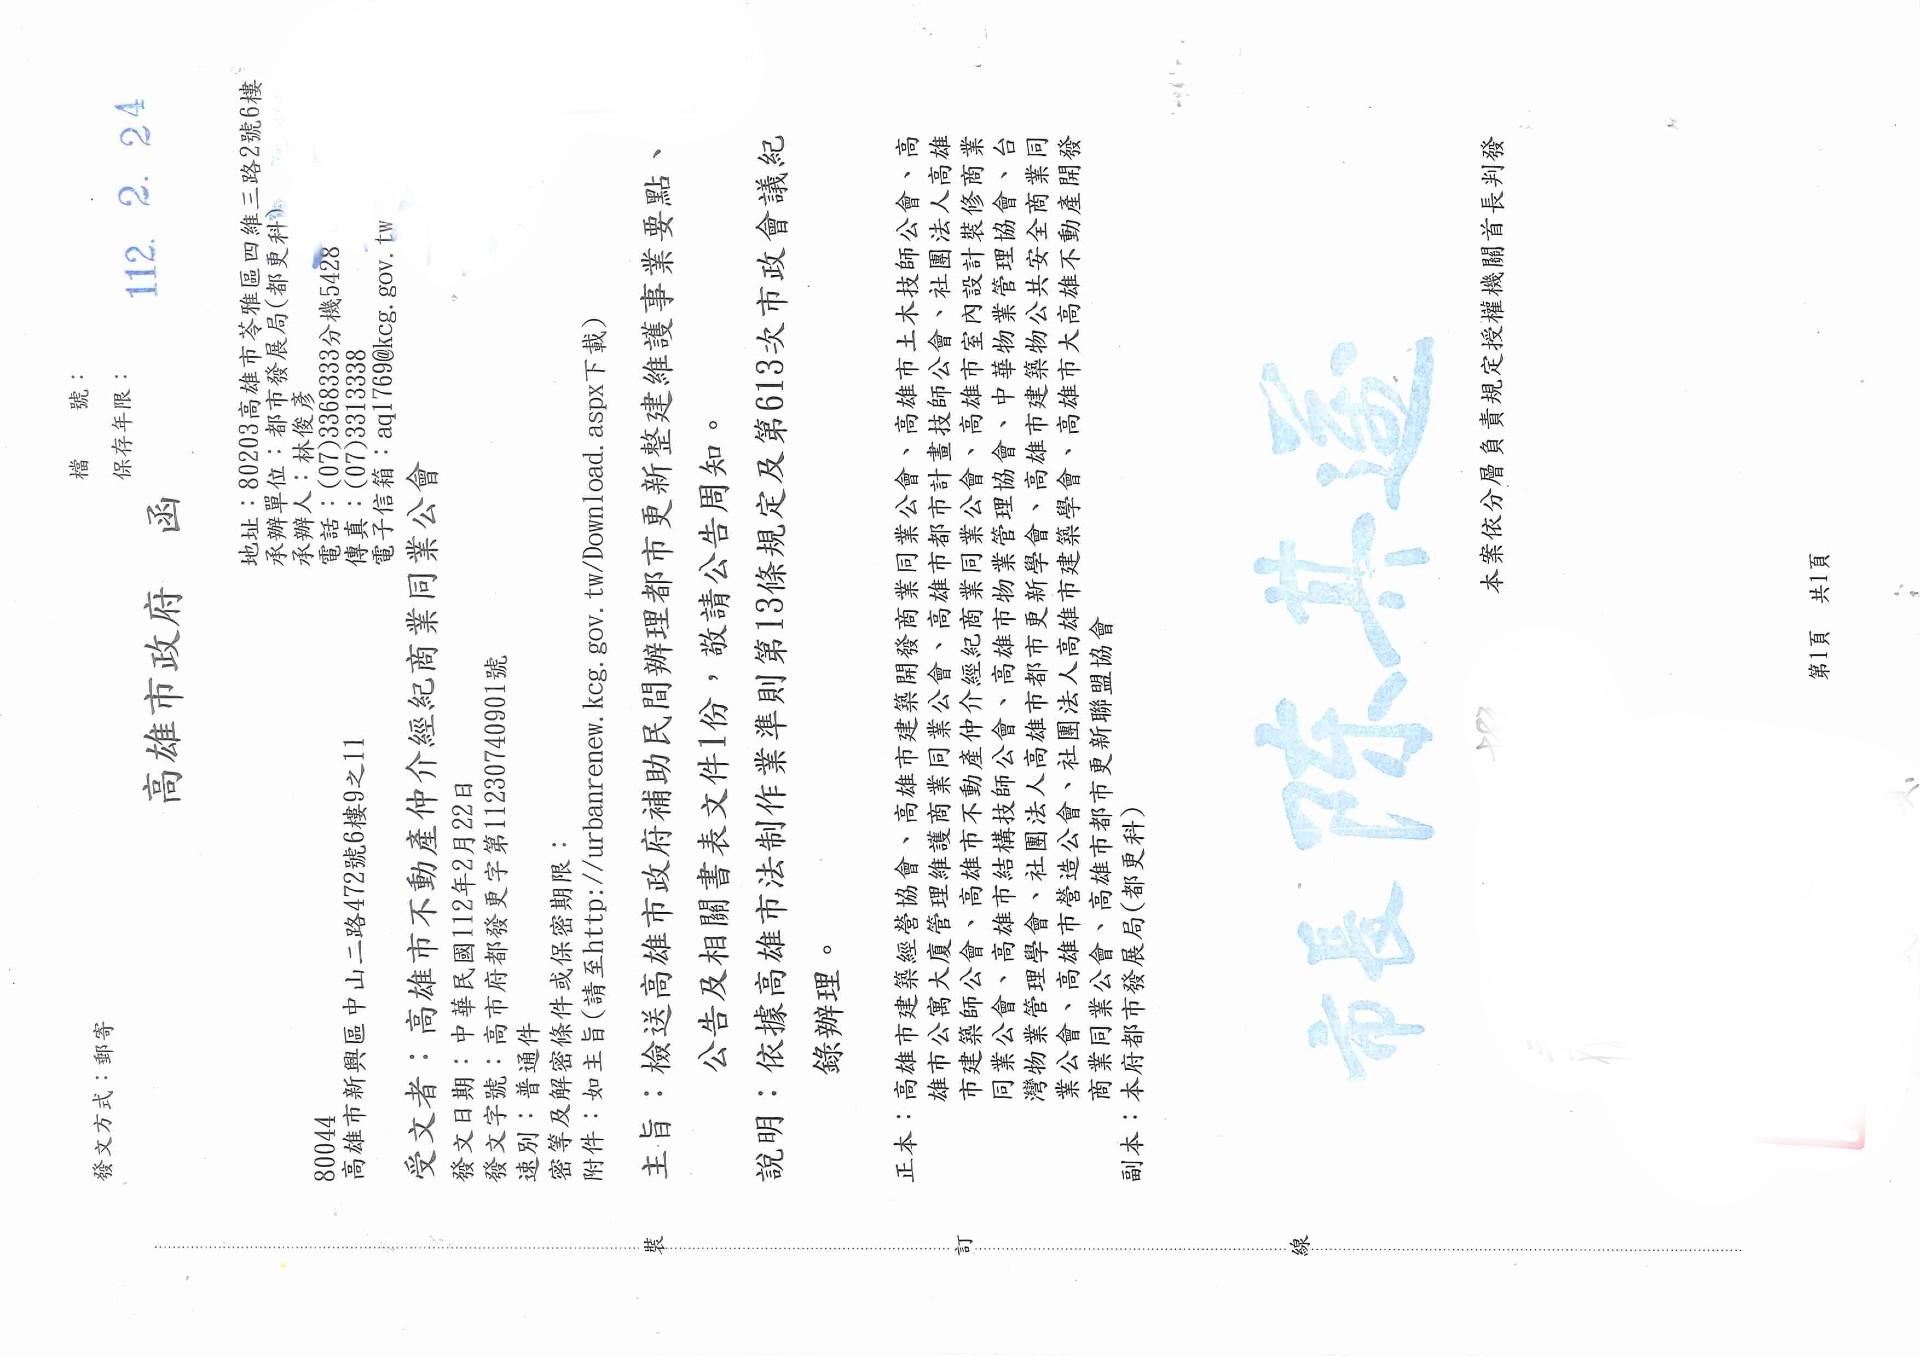 檔　　號：
保存年限：
112. 2. 24
發文方式：郵寄
高雄市政府　函
地址：80203高雄市苓雅區四維三路2號6樓
承辦單位：都市發展局(都更科)
承辦人：林俊彥
電話：(07)3368333分機5428
傳真：(07)3313338
電子信箱：aq1769@kcg.gov.tw
80044
高雄市新興區中山二路472號6樓9之11
受文者：高雄市不動產仲介經紀商業同業公會
發文日期：中華民國112年2月22日
發文字號：高市府都發更字第11230740901號
速別：普通件
密等及解密條件或保密期限：
附件：如主旨(請至http://urbanrenew.kcg.gov.tw/Download.aspx下載)
主旨：檢送高雄市政府補助民間辦理都市更新整建維護事業要點、
公告及相關書表文件1份，敬請公告周知。
說明：依據高雄市法制作業準則第13條規定及第613次市政會議紀
錄辦理。
正本：高雄市建築經營協會、高雄市建築開發商業同業公會、高雄市土木技師公會、高
雄市公寓大廈管理維護商業同業公會、高雄市都市計畫技師公會、社團法人高雄
市建築師公會、高雄市不動產仲介經紀商業同業公會、高雄市室內設計裝修商業
同業公會、高雄市結構技師公會、高雄市物業管理協會、中華物業管理協會、台
灣物業管理學會、社團法人高雄市都市更新學會、高雄市建築物公共安全商業同
業公會、高雄市營造公會、社團法人高雄市建築學會、高雄市大高雄不動產開發
商業同業公會、高雄市都市更新聯盟協會
副本：本府都市發展局(都更科)
市長 陳其邁
本案依分層負責規定授權機關首長判發
第1頁　共1頁
裝
訂
線